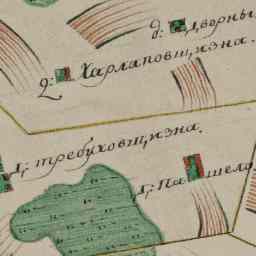 д: Дворны
д: Харлаповщизна.
д: требуховщизна.
д: Па шело